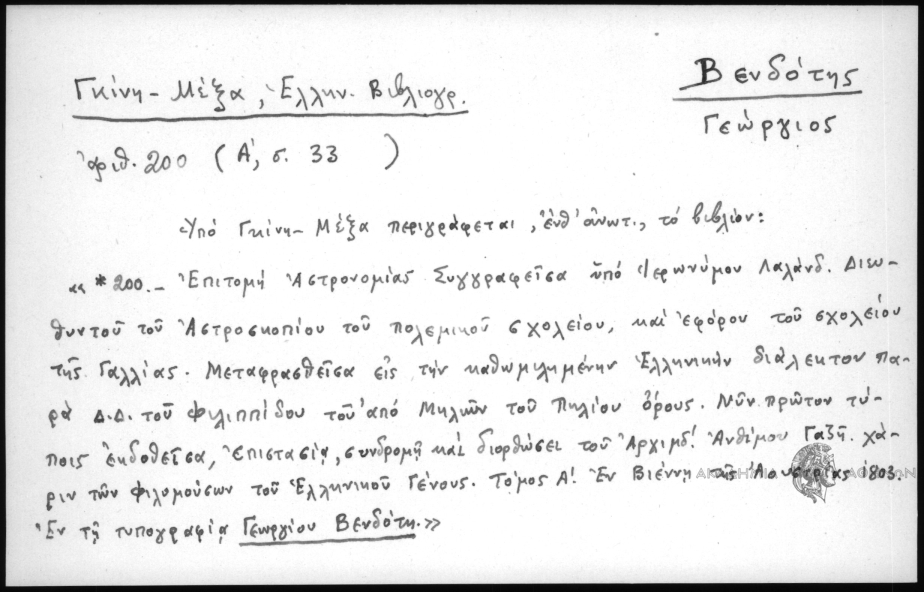 Γκίνη - Μέξα, Ἑλλην. Βιβλιογρ.
Βενδότης
Γεώργιος
ἀριθ. 200 (Α', σ. 33 )
Ὑπό Γκίνη - Μέξα περιγράφεται, ἔνθ' ἀνωτ., τό βιβλίον:
« *200.- Ἐπιτομή Ἀστρονομίας Συγγραφεῖσα ὑπό Ἱερωνύμου Λαλάνδ. Διευ-
θυντοῦ τοῦ Ἀστροσκοπίου τοῦ πολεμικοῦ σχολείου, καί ἐφόρου τοῦ σχολείου
τῆς Γαλλίας. Μεταφρασθεῖσα εἰς τήν καθωμιλημένην Ἑλληνικήν διάλεκτον πα-
ρά Δ.Δ. τοῦ Φιλιππίδου τοῦ ἀπό Μηλιῶν τοῦ Πηλίου ὄρους. Νῦν πρῶτον τύ-
ποις ἐκδοθεῖσα, ἐπιστασίᾳ, συνδρομῇ καί διορθώσει τοῦ Ἀρχιμδ! Ἀνθίμου Γαζῆ. χά-
ριν τῶν φιλομούσων τοῦ Ἑλληνικοῦ Γένους. Τόμος Α! Ἐν Βιέννῃ τῆς Ἀουστρίας 1803.
Ἐν τῇ τυπογραφίᾳ Γεωργίου Βενδότη.»